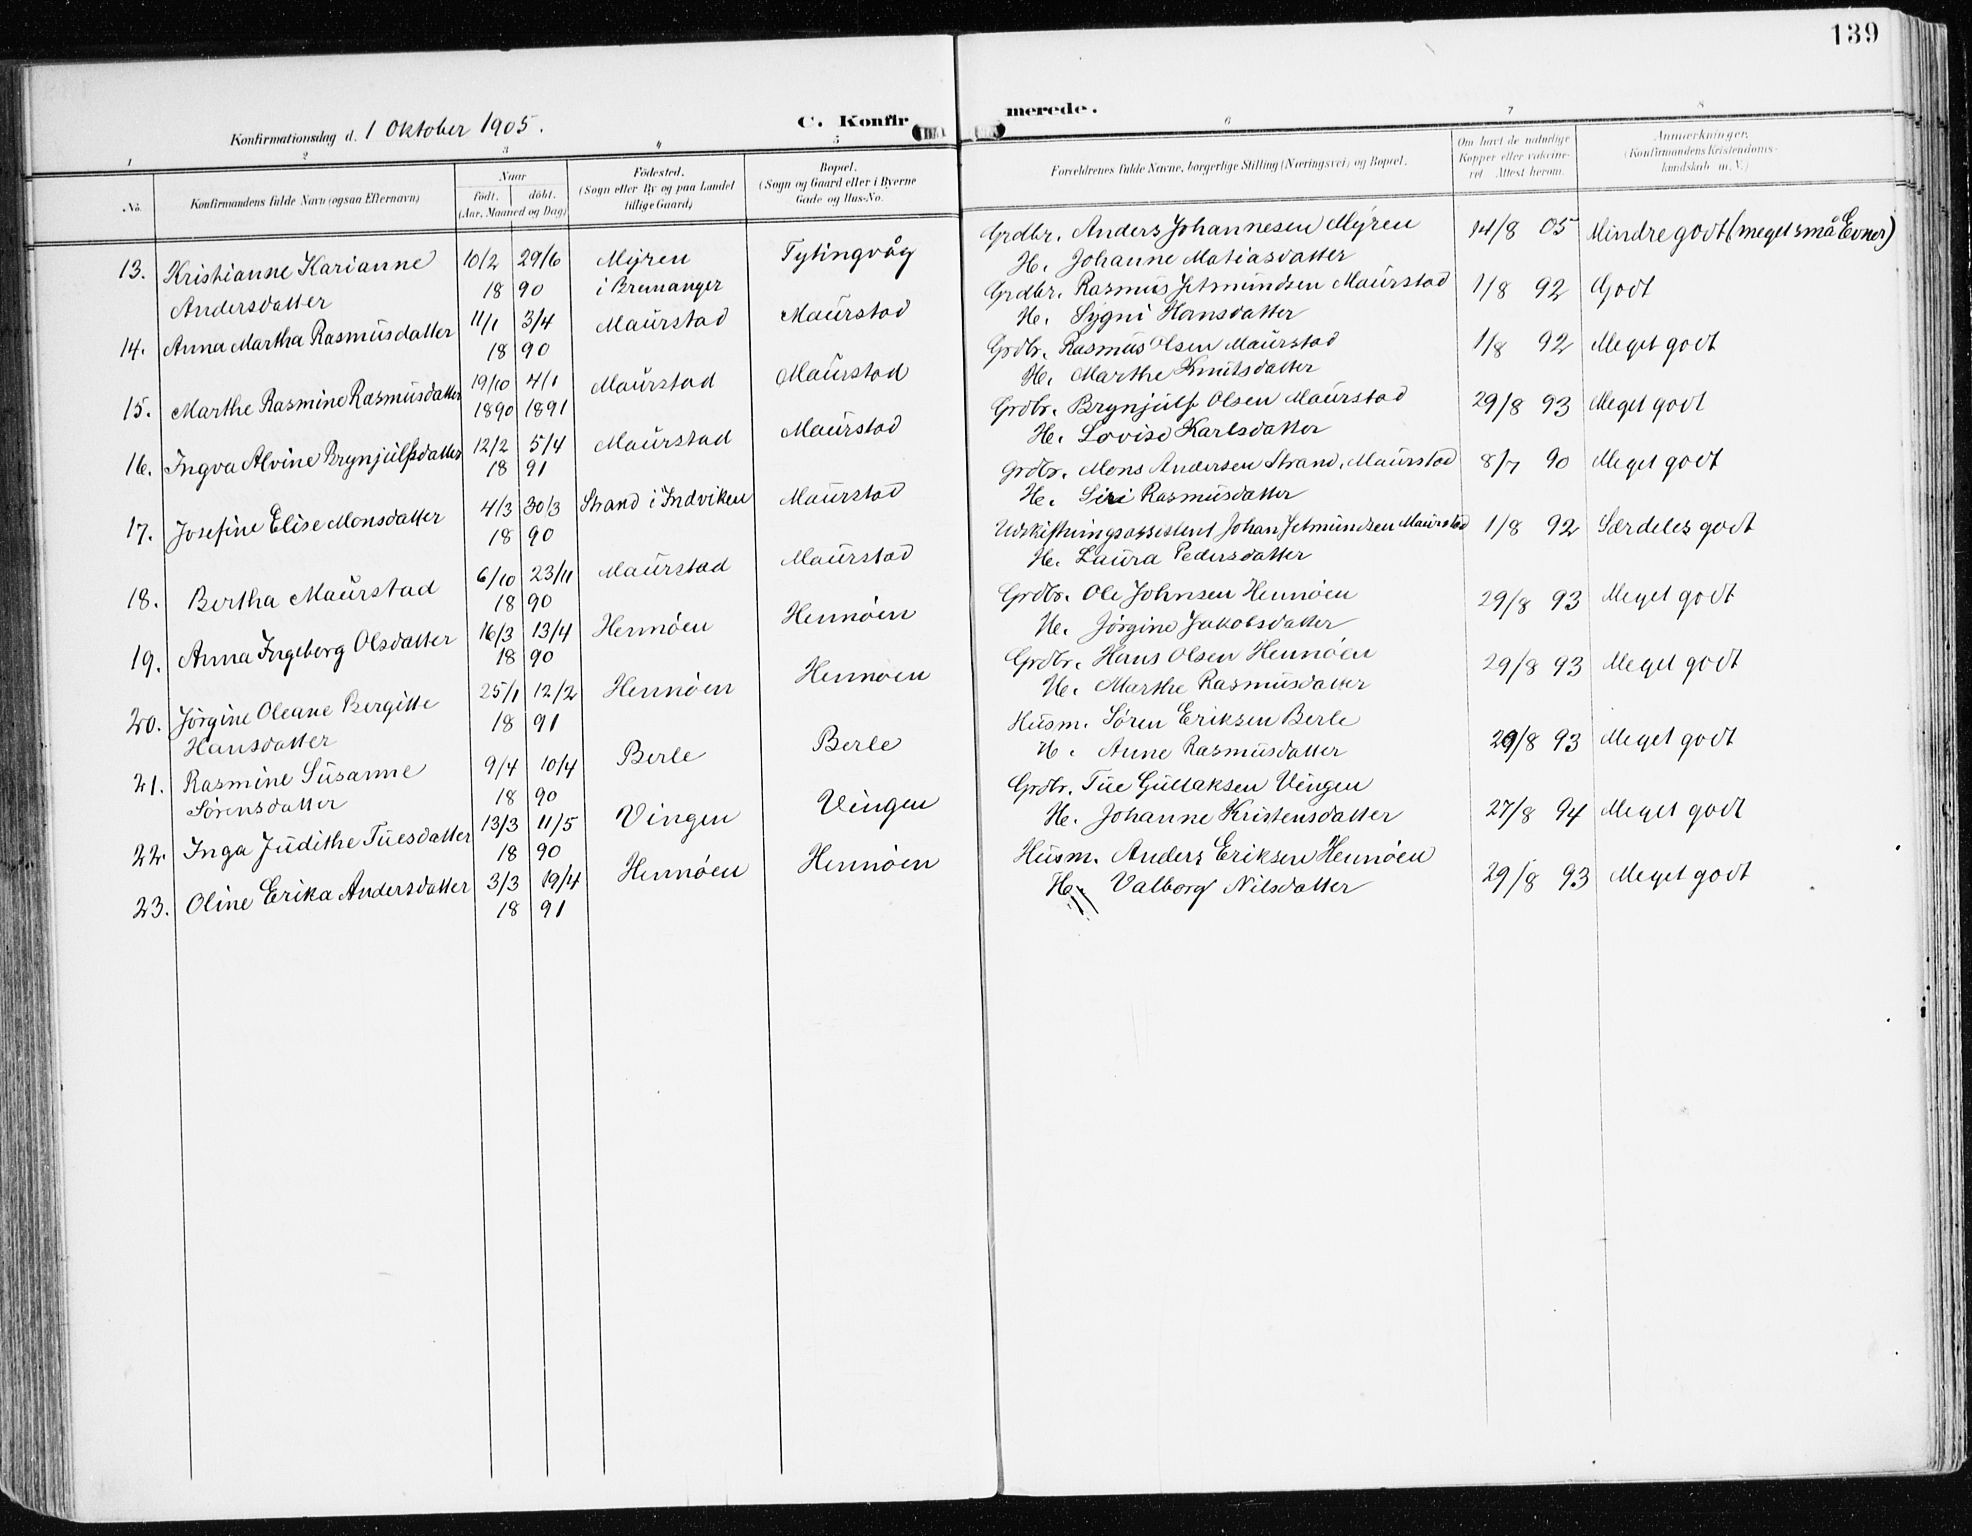 139
Konfirmationsdag d. 1 Oktober 1905. C. Konfir merede.
1 2 3 4 5 6 7 8
No. Konfirmandens fulde Navn (ogsaa Efternavn) Naar født. døbt. (Aar, Maaned og Dag) Fødested. (Sogn eller By og paa Landet tillige Gaard) Bopæl. (Sogn og Gaard eller i Byerne Gade og Hus-No. Forældrenes fulde Navne, borgerlige Stilling (Næringsvei) og Bopæl. Om havt de naturlige Kopper eller vaksineret. Attest herom. Anmerkninger. (Konfirmandens Kristendomskundskab m. V.)
13. Kristianne Karianne 10/2 29/6 Myren Tytingvåg Grdbr. Anders Johannesen Myren 14/8 05 Mindre godt (meget små Evner)
Andersdatter 18 90 i Bremanger H. Johanne Matiasdatter
14. Anna Martha Rasmusdatter 11/1 3/4 Maurstad Maurstad Grdbr. Rasmus Jetmundsen Maurstad 1/8 92 Godt
18 90 H. Sygni Hansdatter
15. Marthe Rasmine Rasmusdatter 19/10 4/1 Maurstad Maurstad Grdbr. Rasmus Olsen Maurstad 1/8 92 Meget godt
1890 1891 H. Marthe Knutsdatter
16. Ingva Alvine Brynjulfsdatter 12/2 5/4 Maurstad Maurstad Grdbr. Brynjulf Olsen Maurstad 29/8 93 Meget godt
18 91 H. Lovise Karlsdatter
17. Josefine Elise Monsdatter 4/3 30/3 Strand i Indviken Maurstad Grdbr. Mons Andersen Strand, Maurstad 8/7 90 Meget godt
18 90 H. Siri Rasmusdatter
18. Bertha Maurstad 6/10 23/11 Maurstad Maurstad Udskiftningsassistent Johan Jetmundsen Maurstad 1/8 92 Særdeles godt
18 90 H. Laura Pedersdatter
19. Anna Ingeborg Olsdatter 16/3 13/4 Hennøen Hennøen Grdbr. Ole Johnsen Hennøen 29/8 93 Meget godt
18 90 H. Jørgine Jakobsdatter
20. Jørgine Oleane Bergitte 25/1 12/2 Hennøen Hennøen Grdbr. Hans Olsen Hennøen 29/8 93 Meget godt
Hansdatter 18 91 H. Marthe Rasmusdatter
21. Rasmine Susanne 9/4 10/4 Berle Berle Husm. Søren Eriksen Berle 29/8 93 Meget godt
Sørensdatter 18 90 H. Anne Rasmusdatter
22. Inga Judithe Tuesdatter 13/3 11/5 Vingen Vingen Grdbr. Tue Gullaksen Vingen 27/8 94 Meget godt
18 90 H. Johanne Kristensdatter
23. Oline Erika Andersdatter 3/3 19/4 Hennøen Hennøen Husm. Anders Eriksen Hennøen 29/8 93 Meget godt
18 91 H. Valborg Nilsdatter